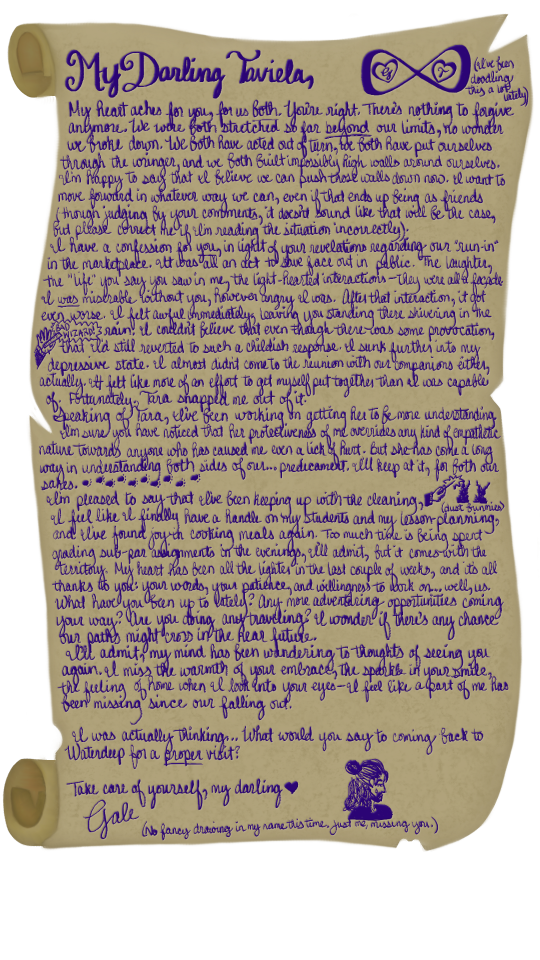 My Darling Taviela,
(I've been
doodling
this a lot
lately)
G T
My heart aches for you, for us both. You're right. There's nothing to forgive
anymore. We were both stretched so far beyond our limits, no wonder
we broke down. We both have acted out of turn, we both have put ourselves
through the wringer, and we both built impossibly high walls around ourselves.
I'm happy to say that I believe we can push those walls down now. I want to
move forward in whatever way we can, even if that ends up being as friends
(though judging by your comments, it doesn't sound like that will be the case,
but please correct me if I'm reading the situation incorrectly);
I have a confession for you, in light of your revelations regarding our "run-in"
in the marketplace. It was all an act to save face out in public. The laughter,
the "life" you say you saw in me, the light-hearted interactions—they were all a facade
I was miserable without you, however angry I was. After that interaction, it got
even worse. I felt awful immediately, leaving you standing there shivering in the
rain. I couldn't believe that even though there was some provocation,
that I'd still reverted to such a childish response. I sunk further into my
depressive state. I almost didn't come to the reunion with our companions either,
actually. It felt like more of an effort to get myself put together than I was capable
of. Fortunately, Tara snapped me out of it.
Speaking of Tara, I've been working on getting her to be more understanding.
I'm sure you have noticed that her protectiveness of me overrides any kind of empathetic
nature towards anyone who has caused me even a lick of hurt. But she has come a long
way in understanding both sides of our... predicament. I'll keep at it, for both our
sakes.
I'm pleased to say that I've been keeping up with the cleaning,
(dust bunnies)
I feel like I finally have a handle on my students and my lesson-planning,
and I've found joy in cooking meals again. Too much time is being spent
grading sub-par assignments in the evenings, I'll admit, but it comes with the
territory. My heart has been all the lighter in the last couple of weeks, and it's all
thanks to you: your words, your patience, and willingness to work on... well, us.
What have you been up to lately? Any more adventuring opportunities coming
your way? Are you doing any traveling? I wonder if there's any chance
our paths might cross in the near future.
I'll admit, my mind has been wandering to thoughts of seeing you
again. I miss the warmth of your embrace, the sparkle in your smile,
the feeling of home when I look into your eyes—I feel like a part of me has
been missing since our falling out.
I was actually thinking... What would you say to coming back to
Waterdeep for a proper visit?
Take care of yourself, my darling ♥
Gale
(No fancy drawing in my name this time. Just me, missing you.)